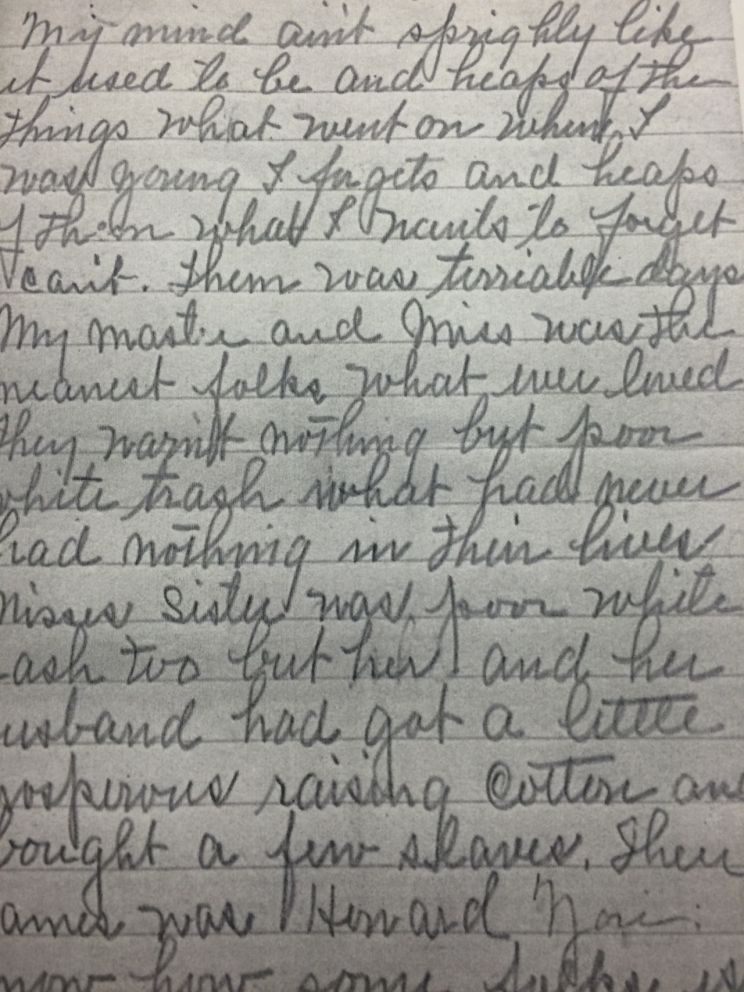 My mind ain't sprighly like
it used to be and heaps of the
things what went on when I
was young I fugets and heaps
of them what I wants to forget
I can't. Them was terriable days
My master and Miss was the
meanest folks what ever lived
they warn't nothing but poor
white trash what had never
had nothing in their lives
Misses sister was poor white
ash too but her and her
usband had got a little
rosperous raising cotton and
bought a few slaves. Their
ames was Howard
now how some folks is